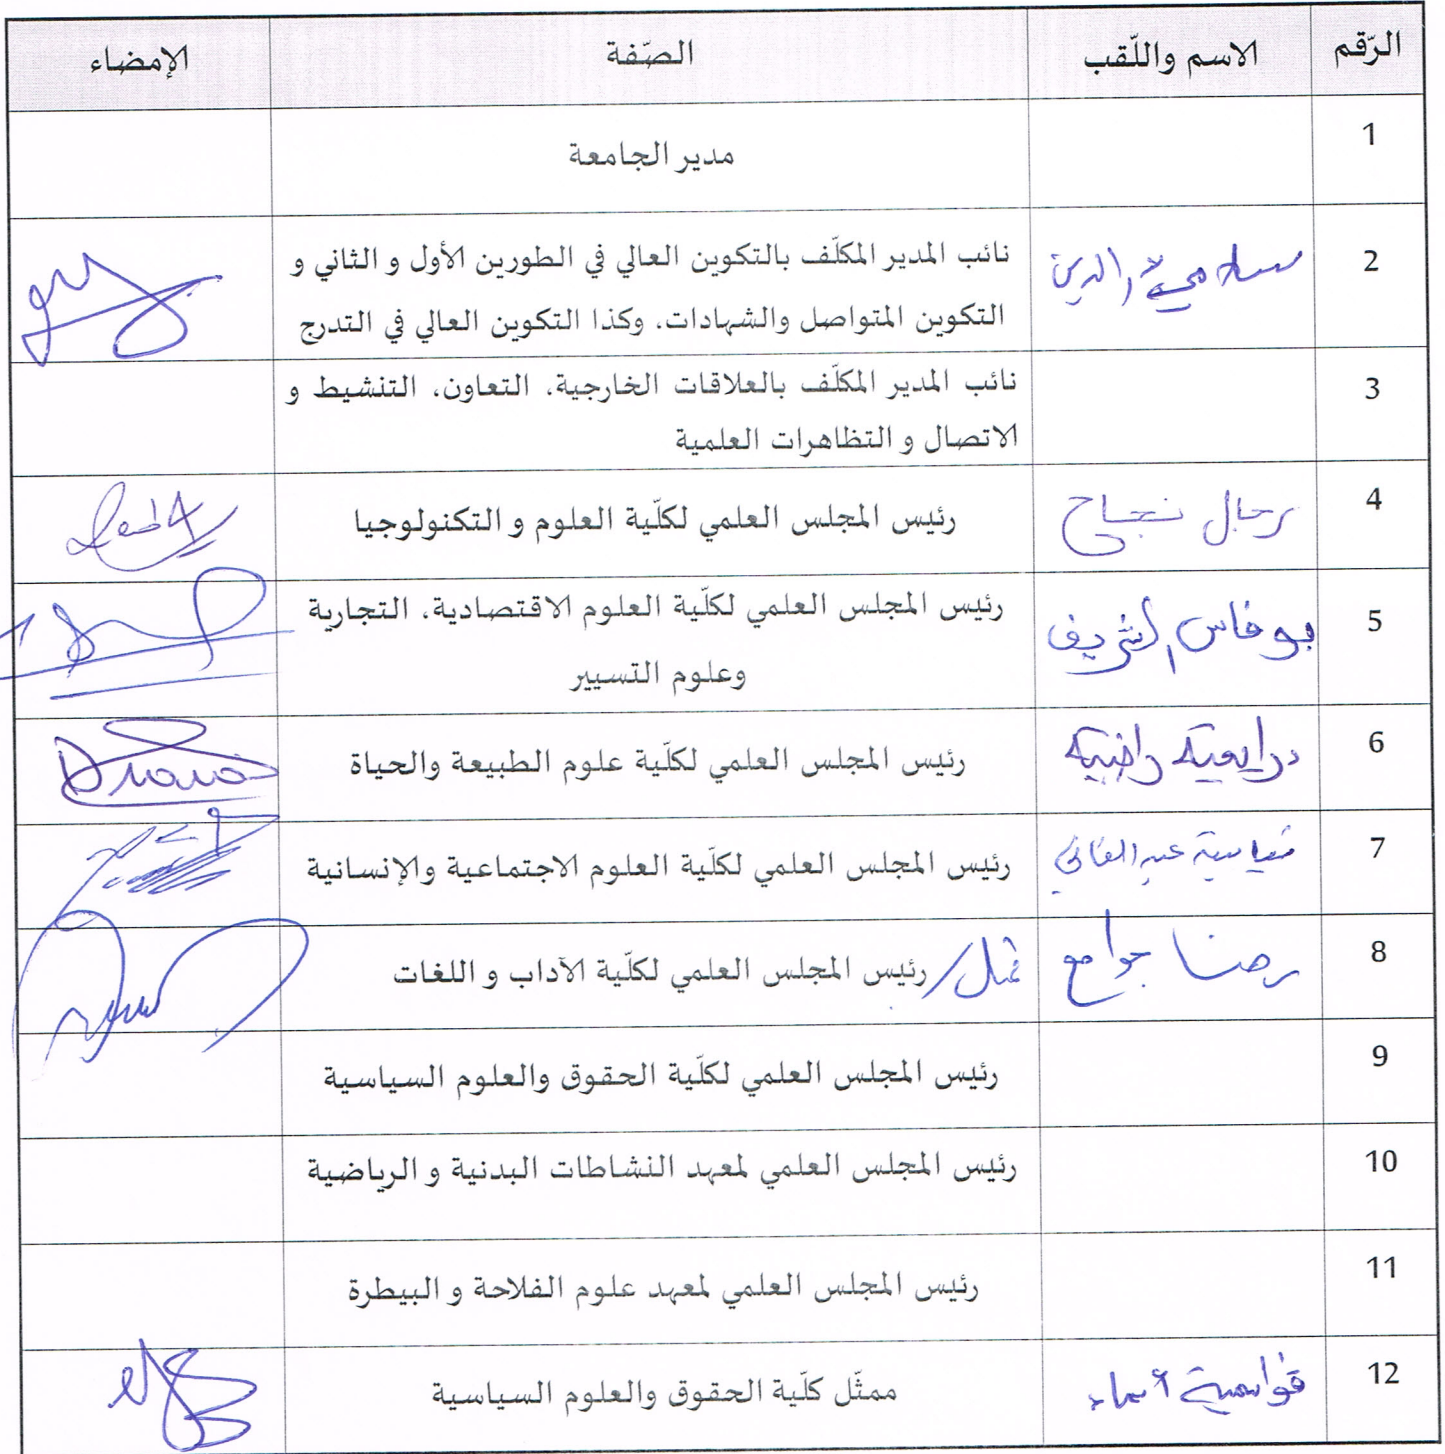 الرّقم الاسم واللّقب الصّفة الإمضاء
1 مدير الجامعة
2 نائب المدير المكلّف بالتكوين العالي في الطورين الأول و الثاني و
التكوين المتواصل والشهادات، وكذا التكوين العالي في التدرج
3 نائب المدير المكلّف بالعلاقات الخارجية، التعاون، التنشيط و
الاتصال و التظاهرات العلمية
4 رحال نجاح رئيس المجلس العلمي لكلّية العلوم و التكنولوجيا
5 بوفاس الشريف رئيس المجلس العلمي لكلّية العلوم الاقتصادية، التجارية
وعلوم التسيير
6 درايعية راضية رئيس المجلس العلمي لكلّية علوم الطبيعة والحياة
7 رئيس المجلس العلمي لكلّية العلوم الاجتماعية والإنسانية
8 رضا جوامع رئيس المجلس العلمي لكلّية الآداب و اللغات
9 رئيس المجلس العلمي لكلّية الحقوق والعلوم السياسية
10 رئيس المجلس العلمي لمعهد النشاطات البدنية و الرياضية
11 رئيس المجلس العلمي لمعهد علوم الفلاحة و البيطرة
12 قواسمية أسماء ممثّل كلّية الحقوق والعلوم السياسية